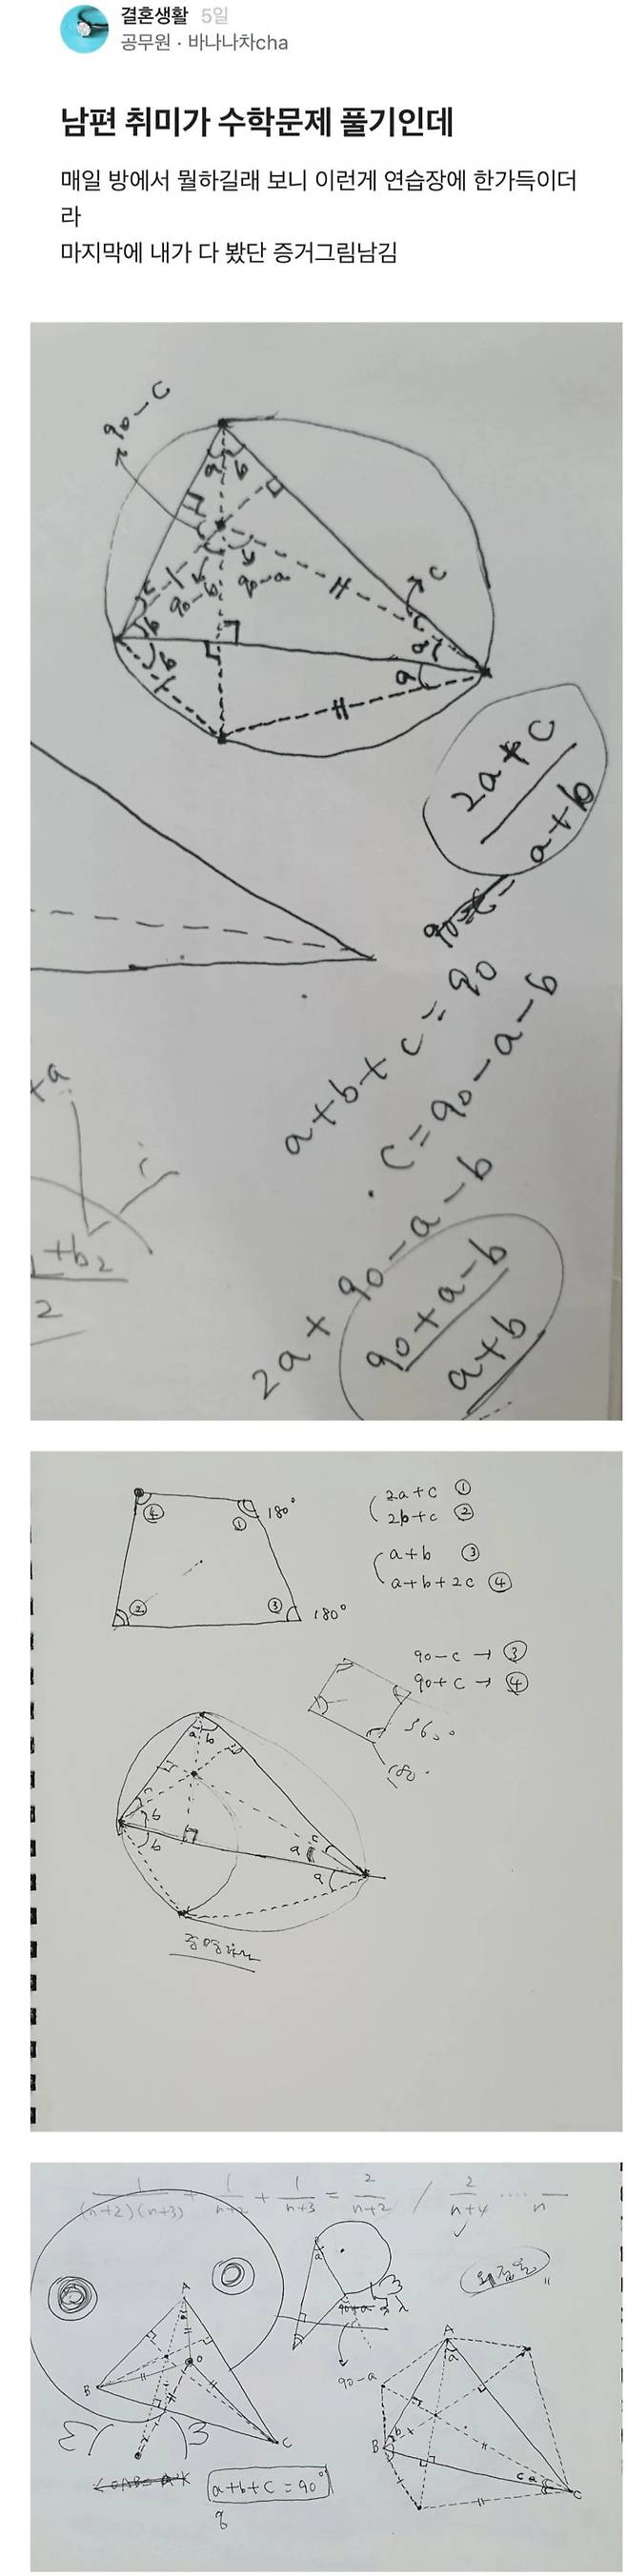 결혼생활 5일
공무원 · 바나나차cha
남편 취미가 수학문제 풀기인데
매일 방에서 뭘하길래 보니 이런게 연습장에 한가득이더
라
마지막에 내가 다 봤단 증거그림남김
90-c
a b
90-b 90-a
c
b
b
a
a
2a+c
a+b
a+b+c=90
c=90-a-b
2a+90-a-b
90+a-b
a+b
+a
+b2
2
④ ① 180°
② ③ 180°
2a+c ①
2b+c ②
a+b ③
a+b+2c ④
90-c → ③
90+c → ④
360°
180°
a b
c
b
b
c
a
a
1/(n+2)(n+3) + 1/n+2 + 1/n+3 = 2/n+2 / 2/n+4 ..... /n
A
a
O
B
C
a+b+c=90°
a
90-a
A
a
B
b
c a
C